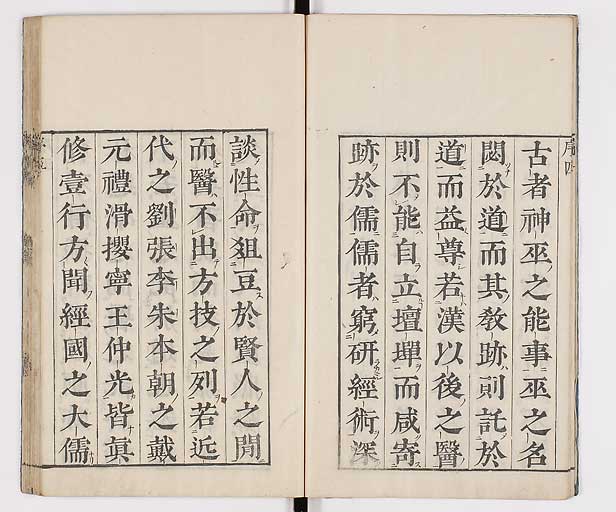 序四
古者神巫之能事巫之名
閎於道而其敎跡則託於
道而益尊若漢以後之醫
則不能自立壇墠而咸寄
跡於儒儒者窮研經術深
談性命俎豆於賢人之閒
而醫不出方技之列若近
代之劉張李朱本朝之戴
元禮滑攖寧王仲光皆眞
修壹行方聞經國之大儒